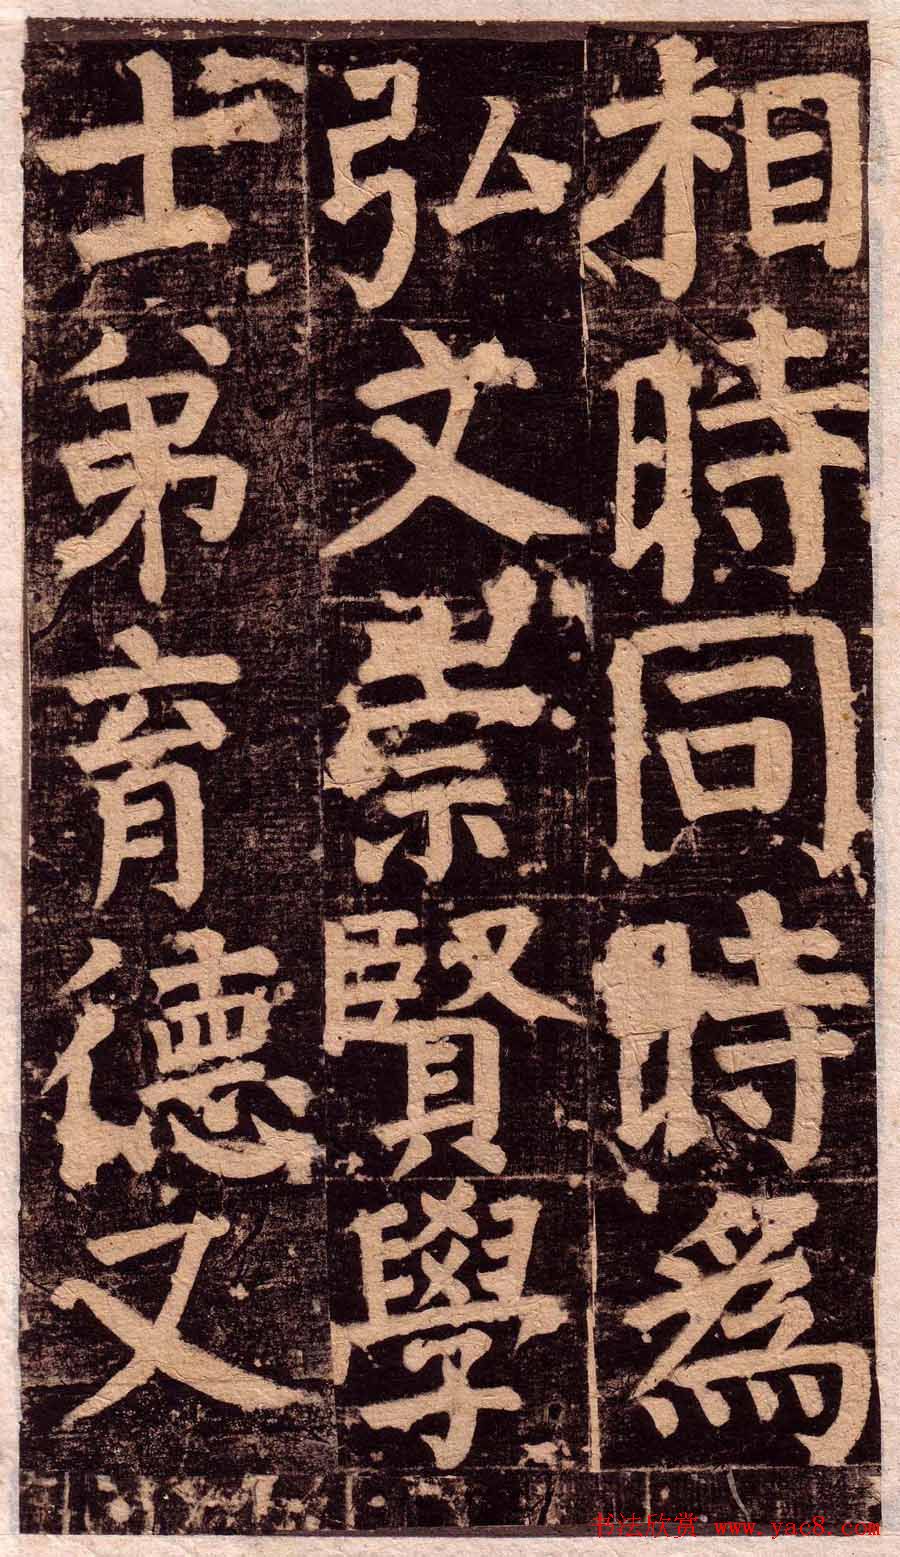 相時同時為
弘文崇賢學
士弟育德又
书法欣赏 www.yac8.com